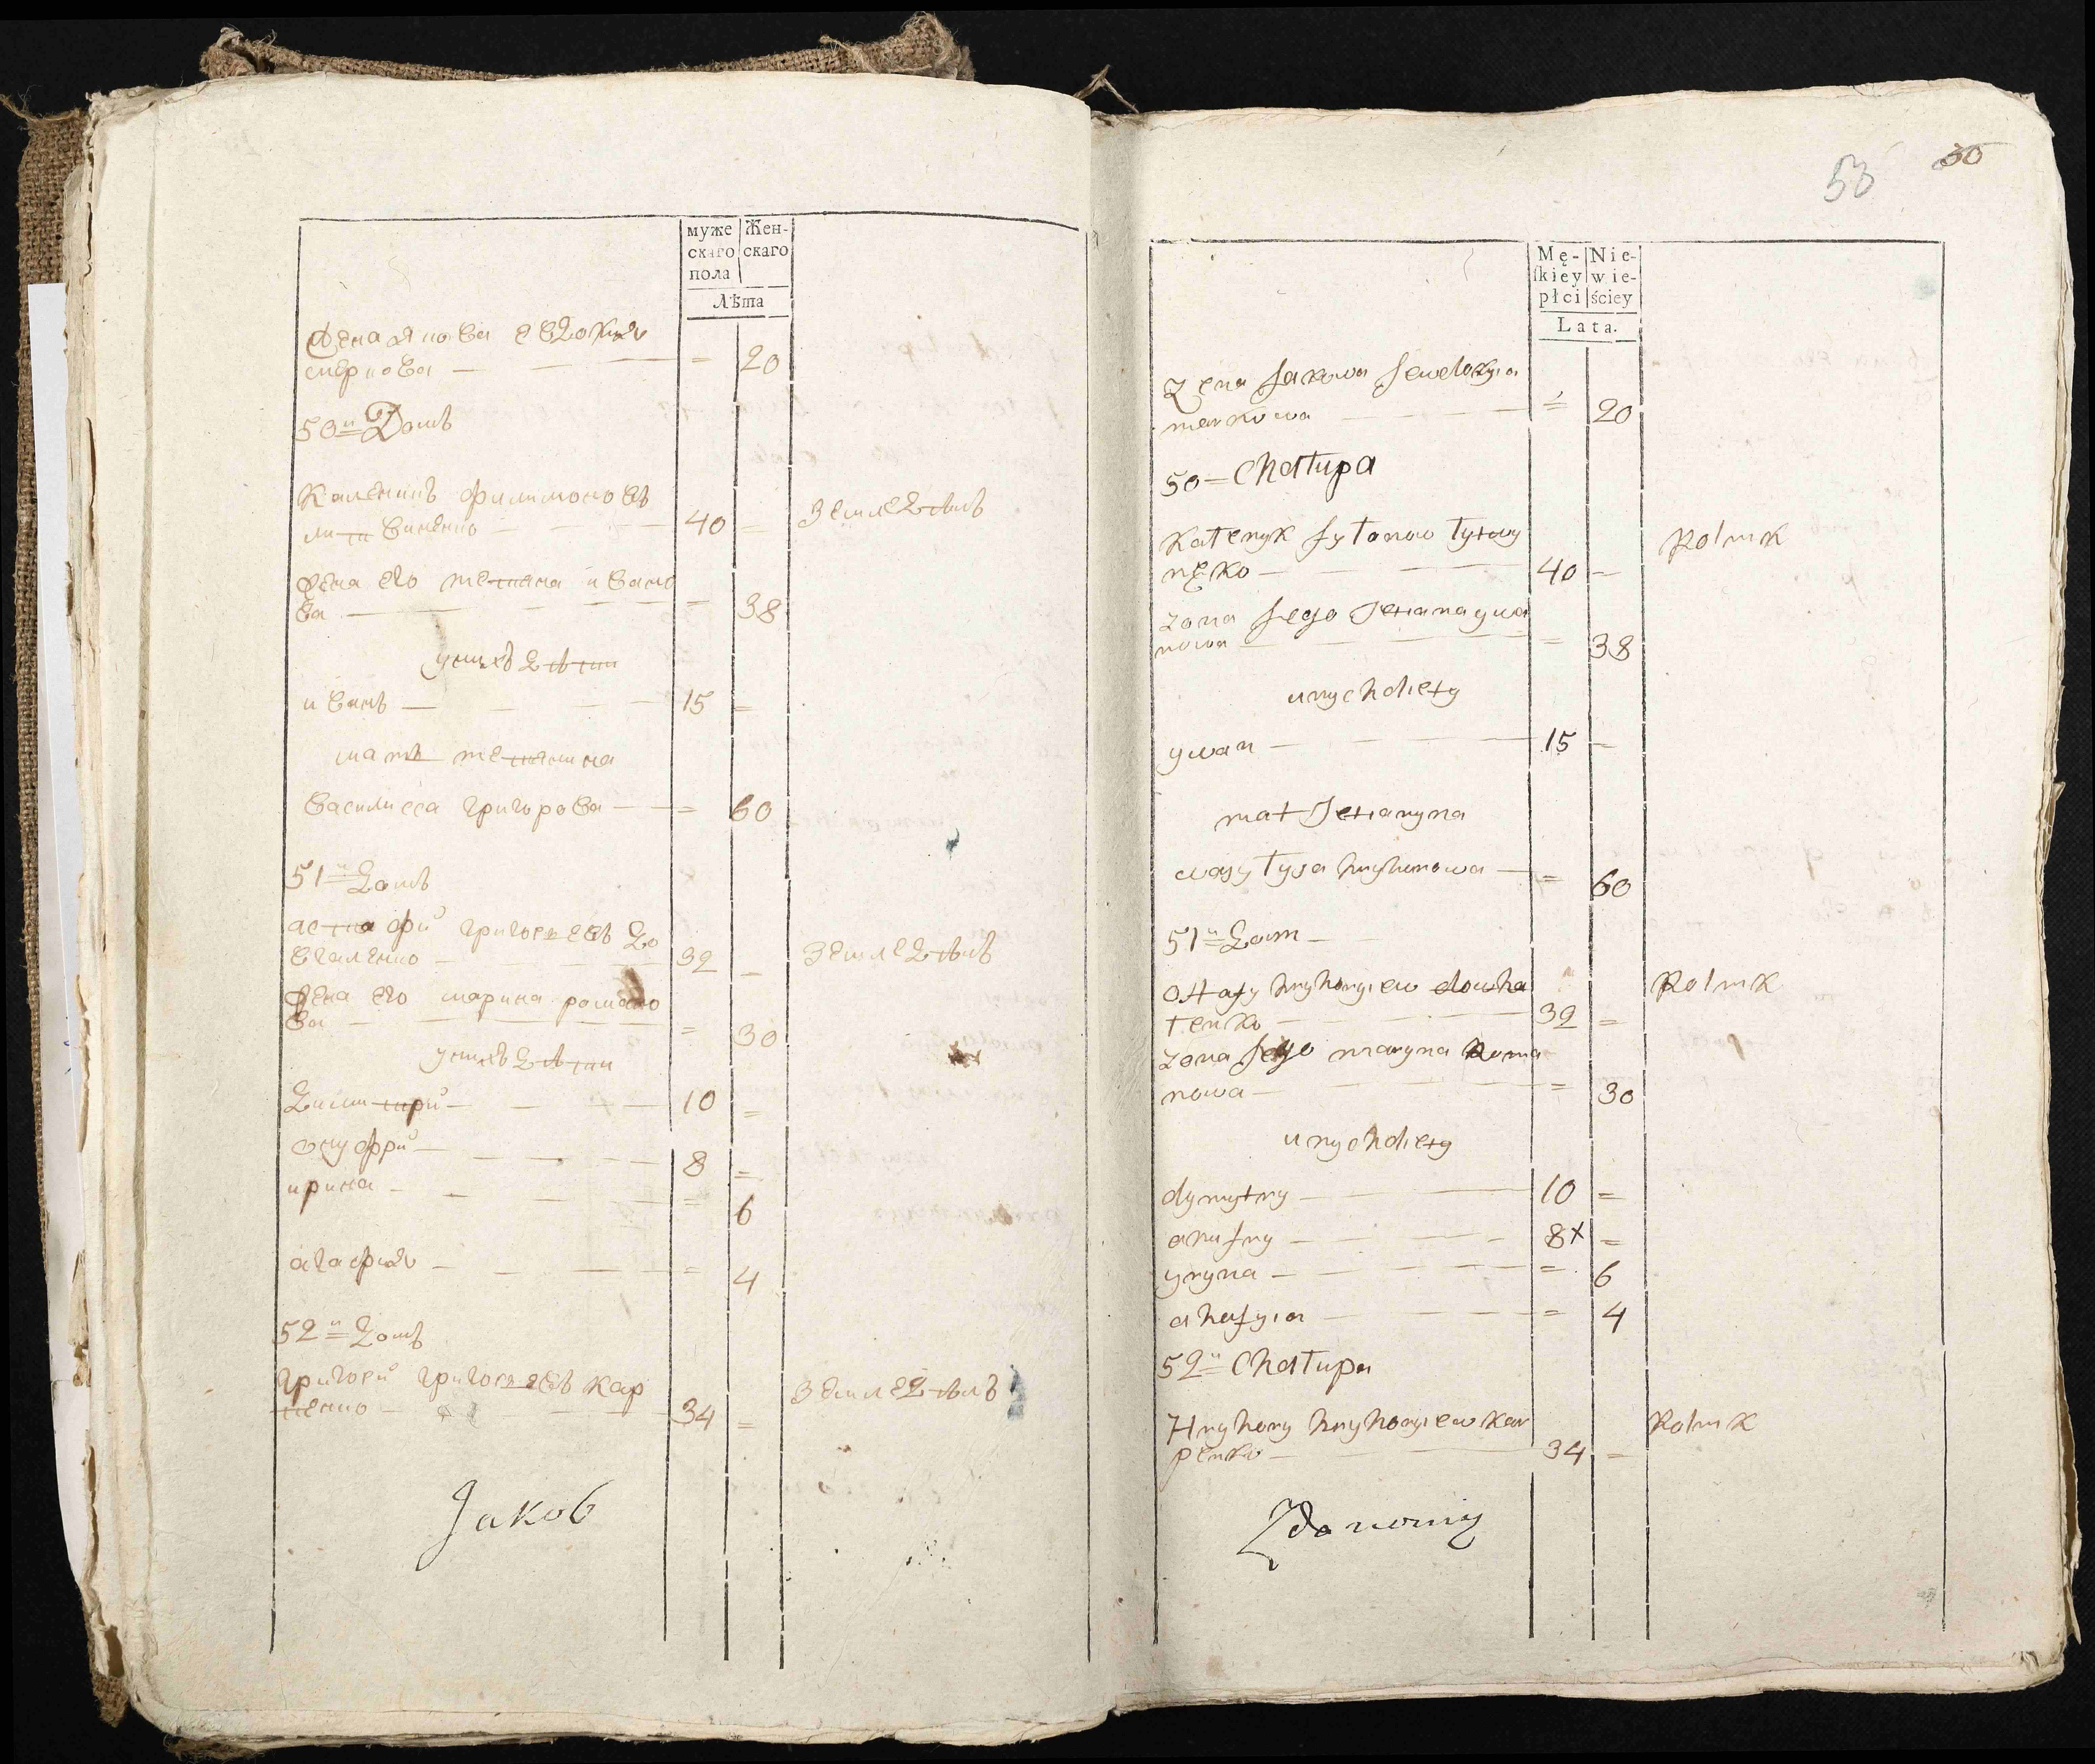 муже скаго пола
Жен- скаго
Лѣта
Жена якова евдокия
маркова — = 20
50й Домъ
Каленикъ филимоновъ
литвиненко — 40 = земледѣлъ
Жена его тетяна ивано
ва — = 38
у нихъ дѣти
иванъ — 15 =
мать тетянина
василисса григорова — = 60
51й домъ
астафiй григорiевъ до
вгаленко — 32 = земледѣлъ
Жена его марина романо
ва — = 30
у нихъ дѣти
димитрiй — 10 =
онуфрiй — 8 =
ирина — = 6
агафия — = 4
52й домъ
григорей григорiевъ кар
пенко — 34 = земледѣлъ
Jakob
53 50
Mę- ſkiey płci
Nie- wie- ściey
Lata.
Zena Jakowa Jewdokyia
markowa — = 20
50 = Chałupa
Kałenyk fyłonow łytwy
nęko — 40 = Rolnik
zona Jego Tetiana ywa
nowa — = 38
u nych diety
ywan — 15 =
mat Tetianyna
wasyłysa hryhurowa — = 60
51й = Dom —
Ostafy hryhoryiew dowha
łenko — 32 = Rolnik
zona Jego maryna Roma
nowa — = 30
u nych diety
dymytry — 10 =
anufry — 8x =
yryna — = 6
ahafyia — = 4
52й = Chałupa
Hryhory hryhoryiew kar
penko — 34 = Rolnik
Zdanowicz